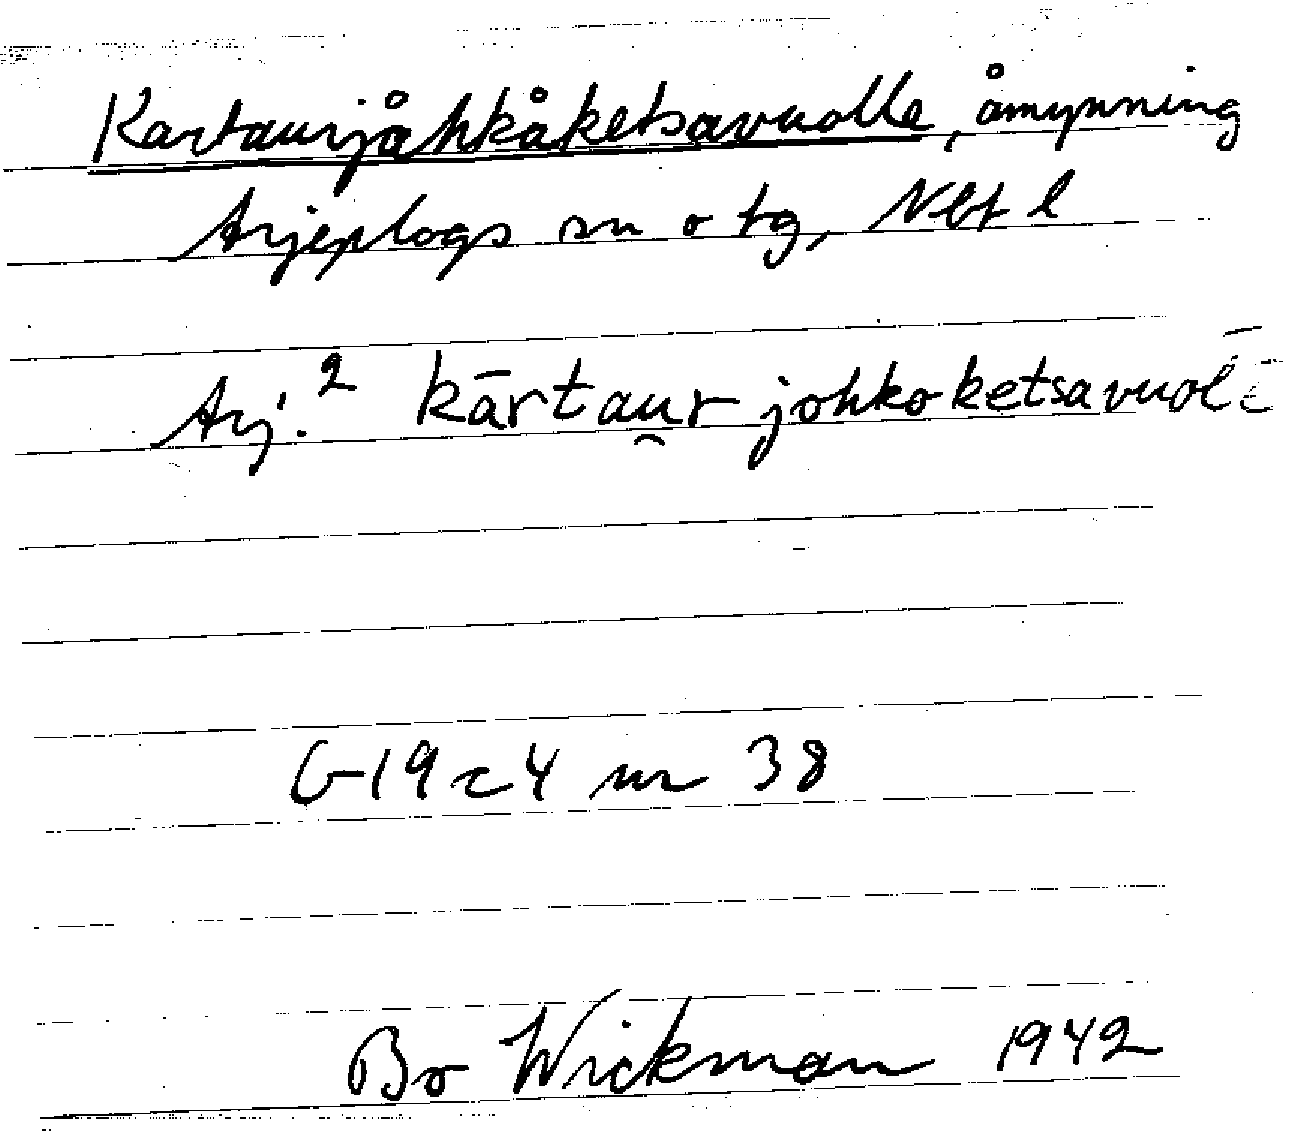 Kartaurjåhkåketsavuolle, åmynning
Arjeplogs sn o tg, Nbt l
Arj.² kārtau̯rjohkoketsavuolē
G19c4 nr 38
Bo Wickman 1942